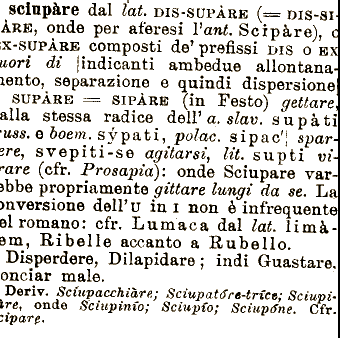 sciupàre dal lat. DIS-SUPÀRE (= DIS-SI-
ÀRE, onde per aferesi l'ant. Scipàre), o
EX-SUPÀRE composti de' prefissi DIS O EX
uori di indicanti ambedue allontana-
mento, separazione e quindi dispersione
SUPÀRE = SIPÀRE (in Festo) gettare,
alla stessa radice dell' a. slav. supàti
russ. e boem. sýpati, polac. sipac' spar-
ere, svepiti-se agitarsi, lit. supti vi-
rare (cfr. Prosapia): onde Sciupare var-
ebbe propriamente gittare lungi da se. La
onversione dell'U in I non è infrequente
el romano: cfr. Lumaca dal lat. limà-
em, Ribelle accanto a Rubello.
Disperdere, Dilapidare; indi Guastare.
onciar male.
Deriv. Sciupacchiàre; Sciupatóre-trice; Sciupi-
àre, onde Sciupinío; Sciupío; Sciupóne. Cfr.
cipare.